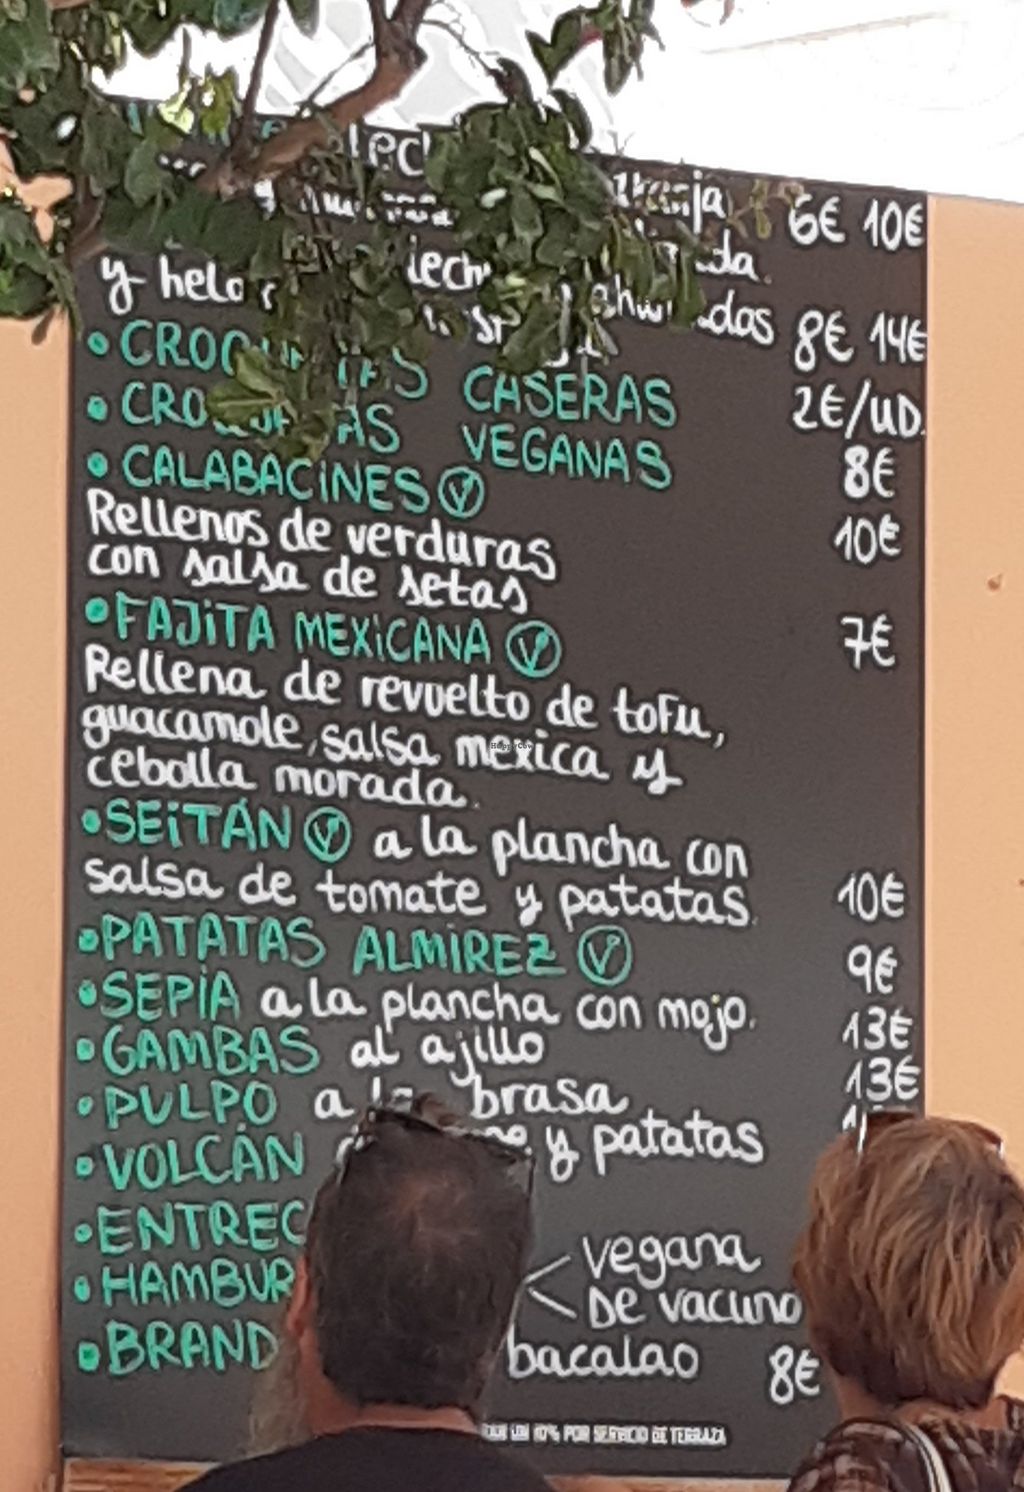 6€ 10€
y
8€ 14€
• CROQUETAS CASERAS 2€/UD.
• CROQUETAS VEGANAS 8€
• CALABACINES Ⓥ 10€
Rellenos de verduras
con salsa de setas
• FAJITA MEXICANA Ⓥ 7€
Rellena de revuelto de tofu,
guacamole, salsa mexica y
cebolla morada.
• SEITÁN Ⓥ a la plancha con
salsa de tomate y patatas. 10€
• PATATAS ALMIREZ Ⓥ 9€
• SEPIA a la plancha con mojo. 13€
• GAMBAS al ajillo 13€
• PULPO a la brasa
• VOLCÁN y patatas
• ENTREC
• HAMBUR < vegana
De vacuno
• BRAND bacalao 8€
UN 10% POR SERVICIO DE TERRAZA
HappyCow